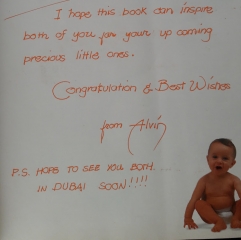 I hope this book can inspire
both of you for your up coming
precious little ones.
Congratulation & Best Wishes
from Alvin
P.S. HOPE TO SEE YOU BOTH......
IN DUBAI SOON!!!!